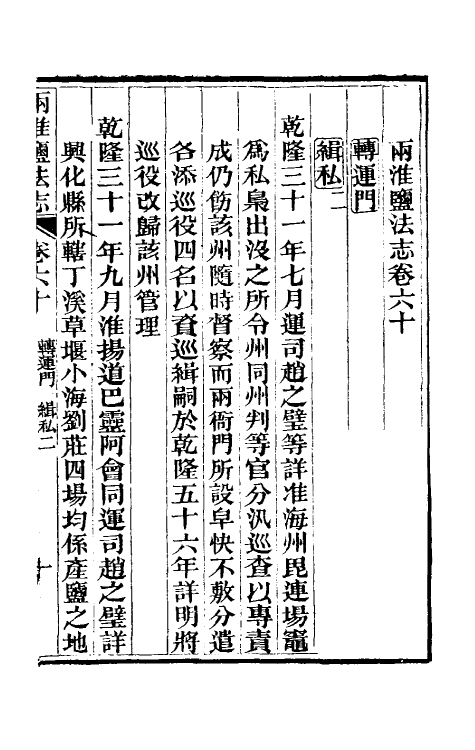 兩淮鹽法志卷六十
轉運門
緝私二
乾隆三十一年七月運司趙之璧等詳准海州毘連場竈
爲私梟出沒之所令州同州判等官分汛巡查以專責
成仍飭該州隨時督察而兩衙門所設皁快不敷分遣
各添巡役四名以資巡緝嗣於乾隆五十六年詳明將
巡役改歸該州管理
乾隆三十一年九月淮揚道巴靈阿會同運司趙之璧詳
興化縣所轄丁溪草堰小海劉莊四場均係產鹽之地
兩淮鹽法志 卷六十 轉運門 緝私二